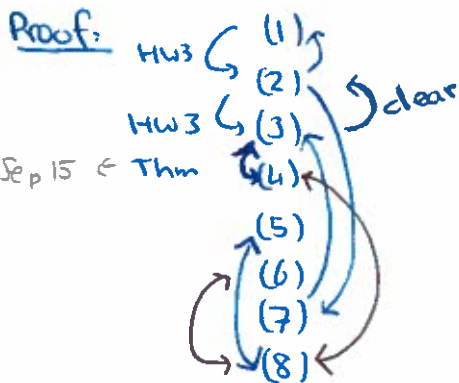 Proof:
HW3 (1)
(2)
clear
HW3 (3)
Sep 15 ← Thm (4)
(5)
(6)
(7)
(8)